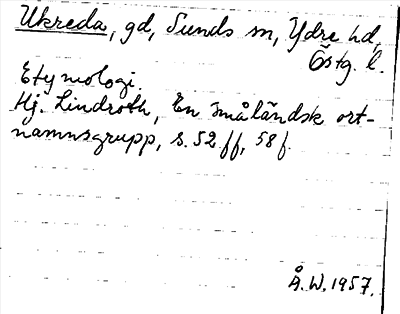 Ukreda, gd, Sunds sn, Ydre hd,
Östg. l.
Etymologi.
Hj. Lindroth, En småländsk ort-
namnsgrupp, s. 52 ff, 58 f.
Å.W. 1957.